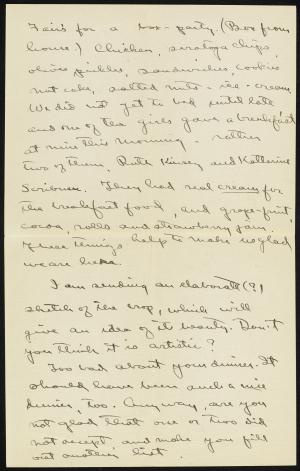 Fair's for a box-party. (Box from
home.) Chicken, saratoga chips,
olives, pickles, sandwiches, cookies
nut cake, salted nuts - ice-cream.
We did not get to bed until late
and one of the girls gave a breakfast
at nine this morning - rather
two of them, Ruth Kinsey and Katherine
Scribner. They had real cream for
the breakfast food, and grape-fruit,
cocoa, rolls and strawberry jam.
These things help to make us glad
we are here.
I am sending an elaborate (?)
sketch of the crop, which will
give an idea of its beauty. Don't
you think it is artistic?
Too bad about your dinner. It
should have been such a nice
dinner, too. Anyway, are you
not glad that one or two did
not accept, and make you fill
out another list.